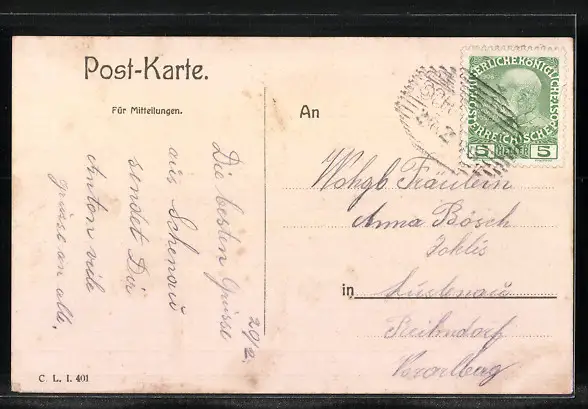 Post-Karte.
Für Mitteilungen.
Die besten Grüsse
aus Schonau
sendet Dir
Anton viele
grüsse an alle.
20/2.
C. L. I. 401
An
KAISERLICHE KÖNIGLICHE
ÖSTERREICHISCHE POST
5 HELLER 5
Wohgb Fräulein
Anna Bösch
in Lustenau
Reihndorf
Vorarlbeg